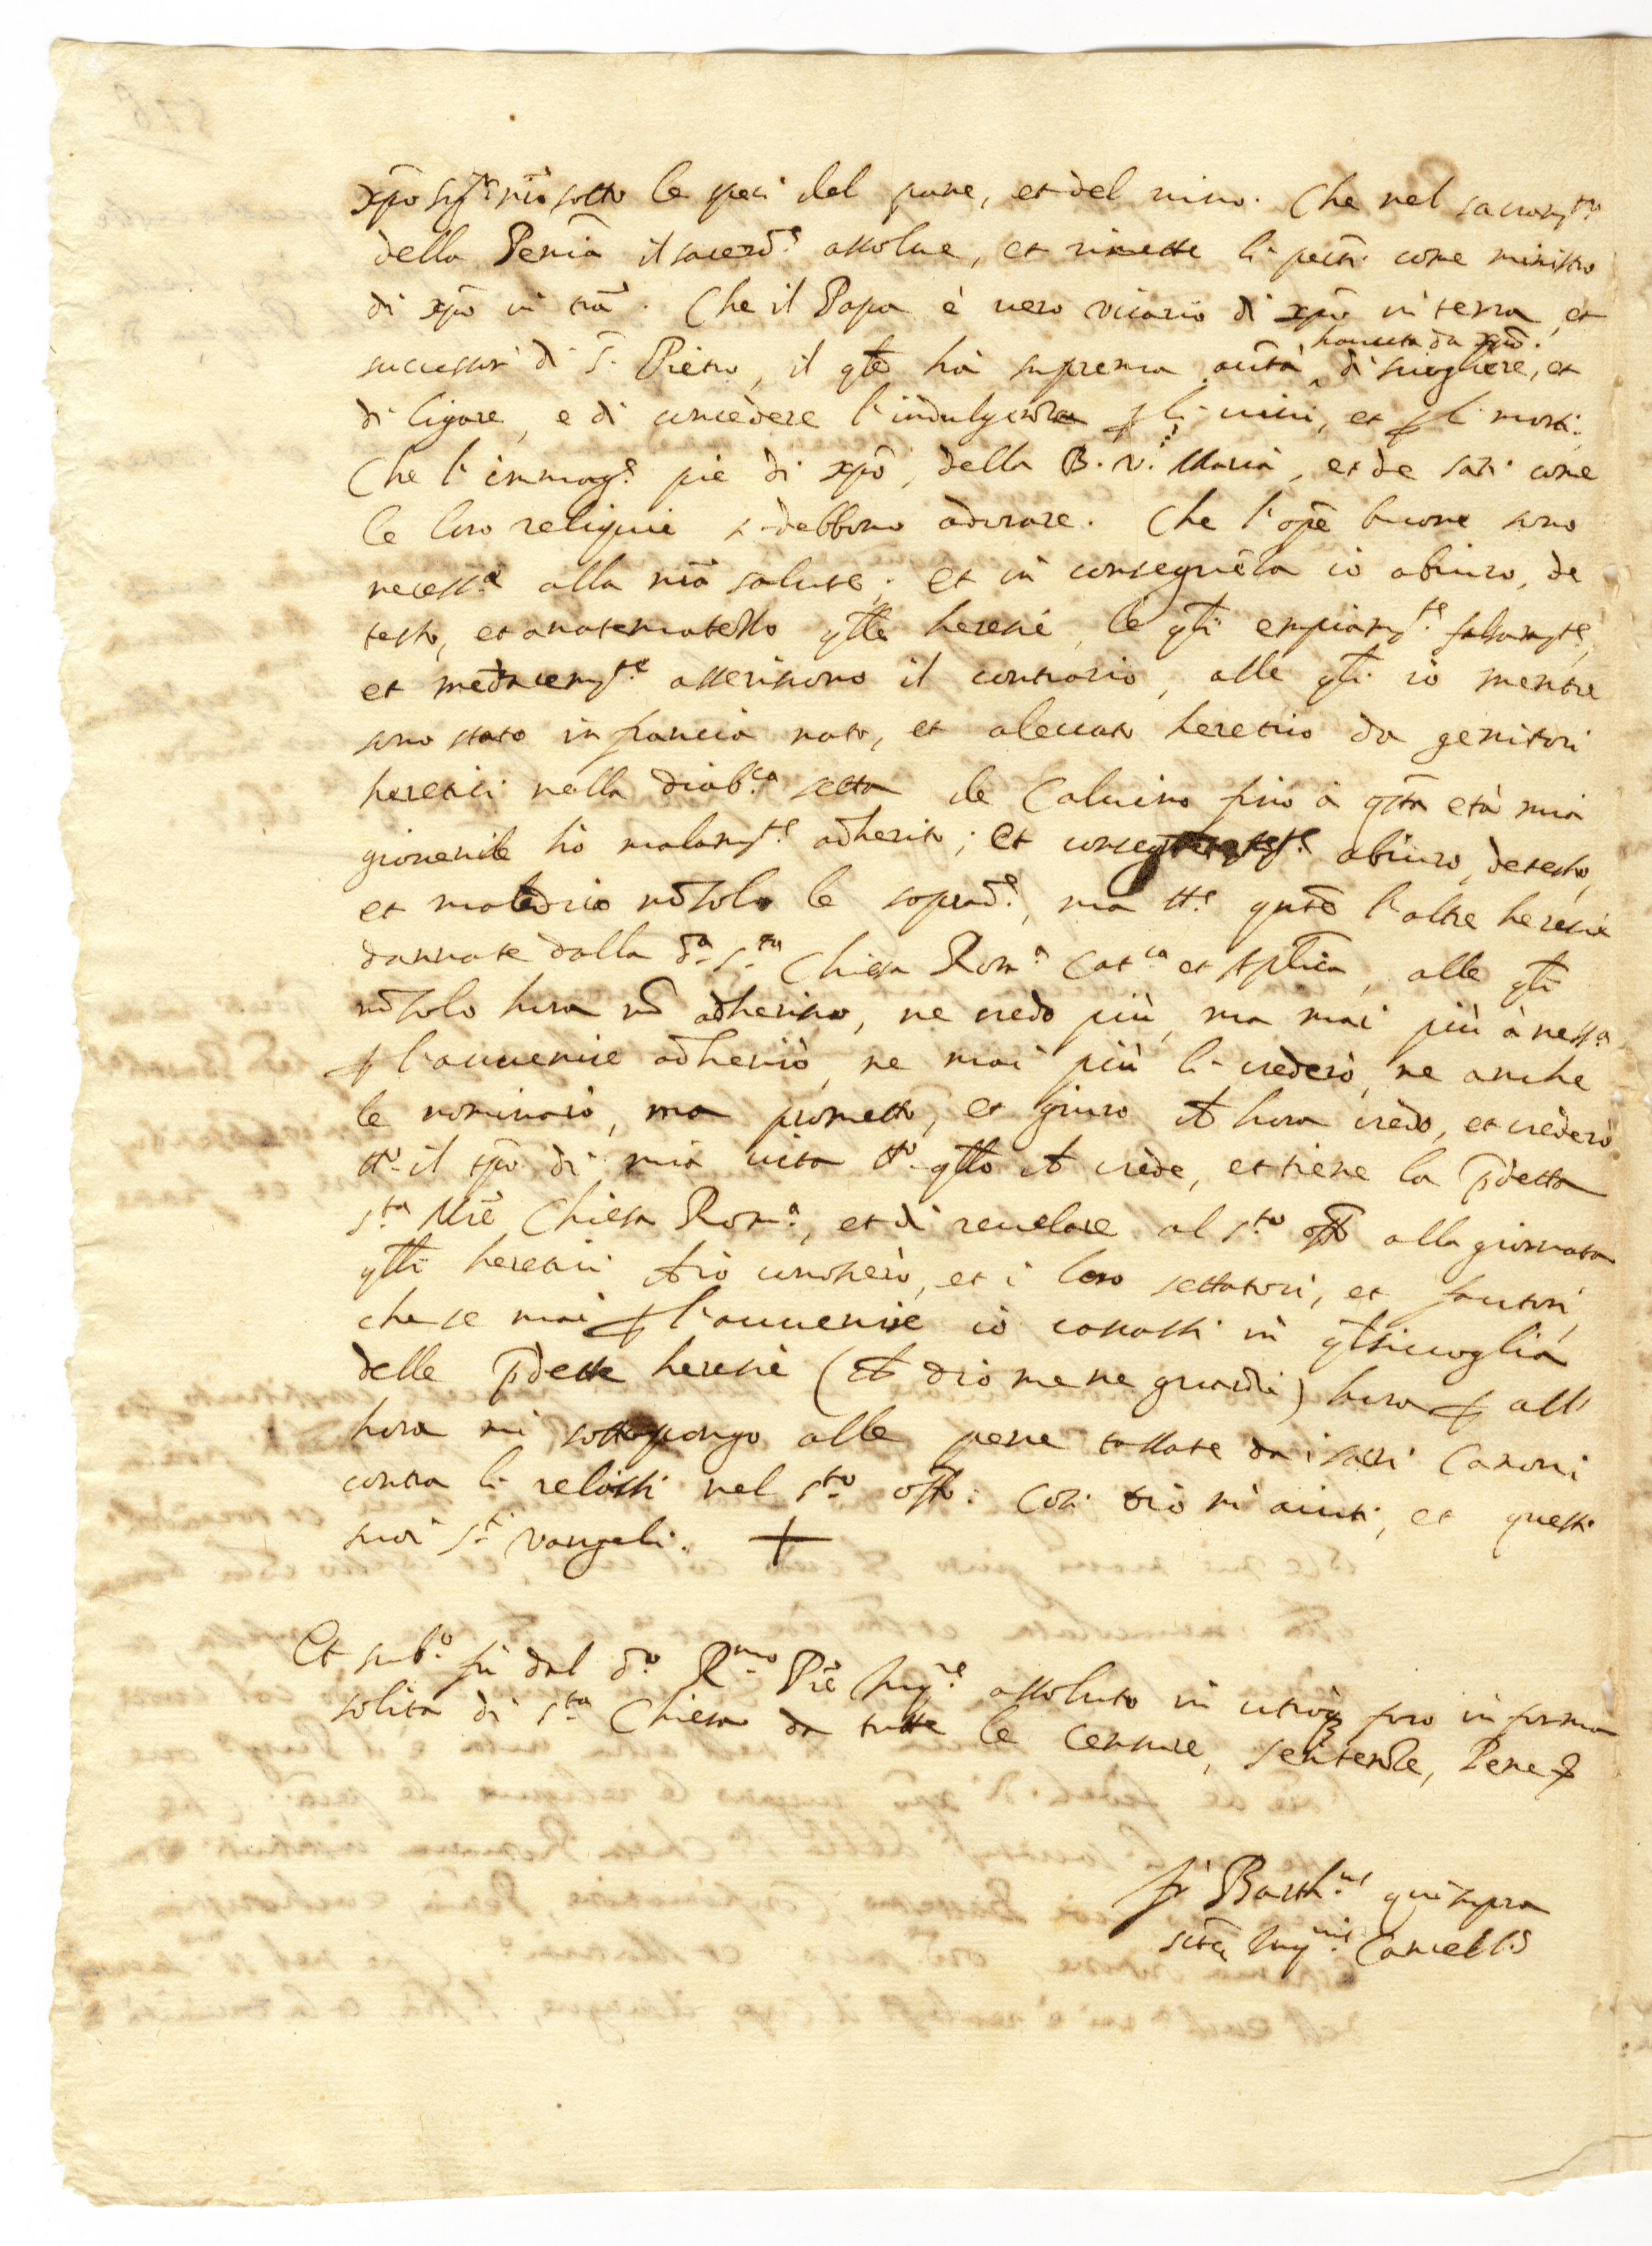 xpo sig.r nrõ sotto le speci del pane, et del vino. Che nel sacram.to
della Penia il sacerd.e assolue, et rimette li pecti come ministro
di xpo in tra. Che il Papa è uero vicario di xpo in terra, et
successor di S. Pietro, il qle hà suprema autta hauuta da xpo. di sciogliere, et
di ligare, e di concedere l'indulgenze p li uiui, et p li morti.
Che l'immag.i pie di xpo, della B. V. Maria, et de santi come
le loro reliquie si debbono adorare. Che l'opre buone sono
necess.e alla nra salute; et in conseguenza io abiuro, de
testo, et anatematezzo qlle heresie, le qli empiam.te falsam.te,
et mendacem.te asseriscono il contrario, alle qli io mentre
sono stato in francia nato, et aleuato heretico da genitori
heretici nella diab.ca setta de Caluino fino à qsta età mia
giouenile hò malam.te adherito; Et conseguentem.te abiuro, detesto,
et maledico nõ solo le soprad.e, ma tt.e qnte l'altre heresie
dannate dalla d.a S.ta Chiesa Rom.a Cat.ca et Aplica, alle qli
nõ solo hora nõ adherisco, ne credo più, ma mai più à ness.a
p l'auuenire adherirò, ne mai più li crederò, ne anche
le nominarò, ma prometto, et giuro ch hora credo, et crederò
tt.o il tpo di mia uita tt.o qllo ch crede, et tiene la pdetta
S.ta Mre Chiesa Rom.a, et di reuelare al S.to Off.o alla giornata
qlli heretici ch io conoscerò, et i loro settatori, et fautori,
che se mai p l'auuenire io cascassi in qlsiuoglia
delle pdette heresie (ch dio me ne guardi) hora p all'
hora mi sottopongo alle pene tassate da i sacri Canoni
contra li relassi nel S.to Off.o: Così Dio m'aiuti, et questi
suoi S.ti Vangeli. +
Et sub.o fù dal d.o R.mo Pre Inq.re assoluto in utroq foro in forma
solita di S.ta Chiesa da tutte le Censure, Sentenze, Pene &
fr Barth.us qui supra
Scta Inq.nis Cancell.s